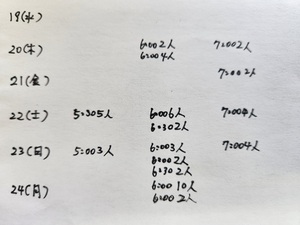 19(水)
20(木) 6:002人 7:002人
6:004人
7:002人
21(金)
22(土) 5:305人 6:006人 7:004人
6:302人
23(日) 5:003人 6:003人 7:004人
6:002人
6:302人
24(月) 6:0010人
6:002人